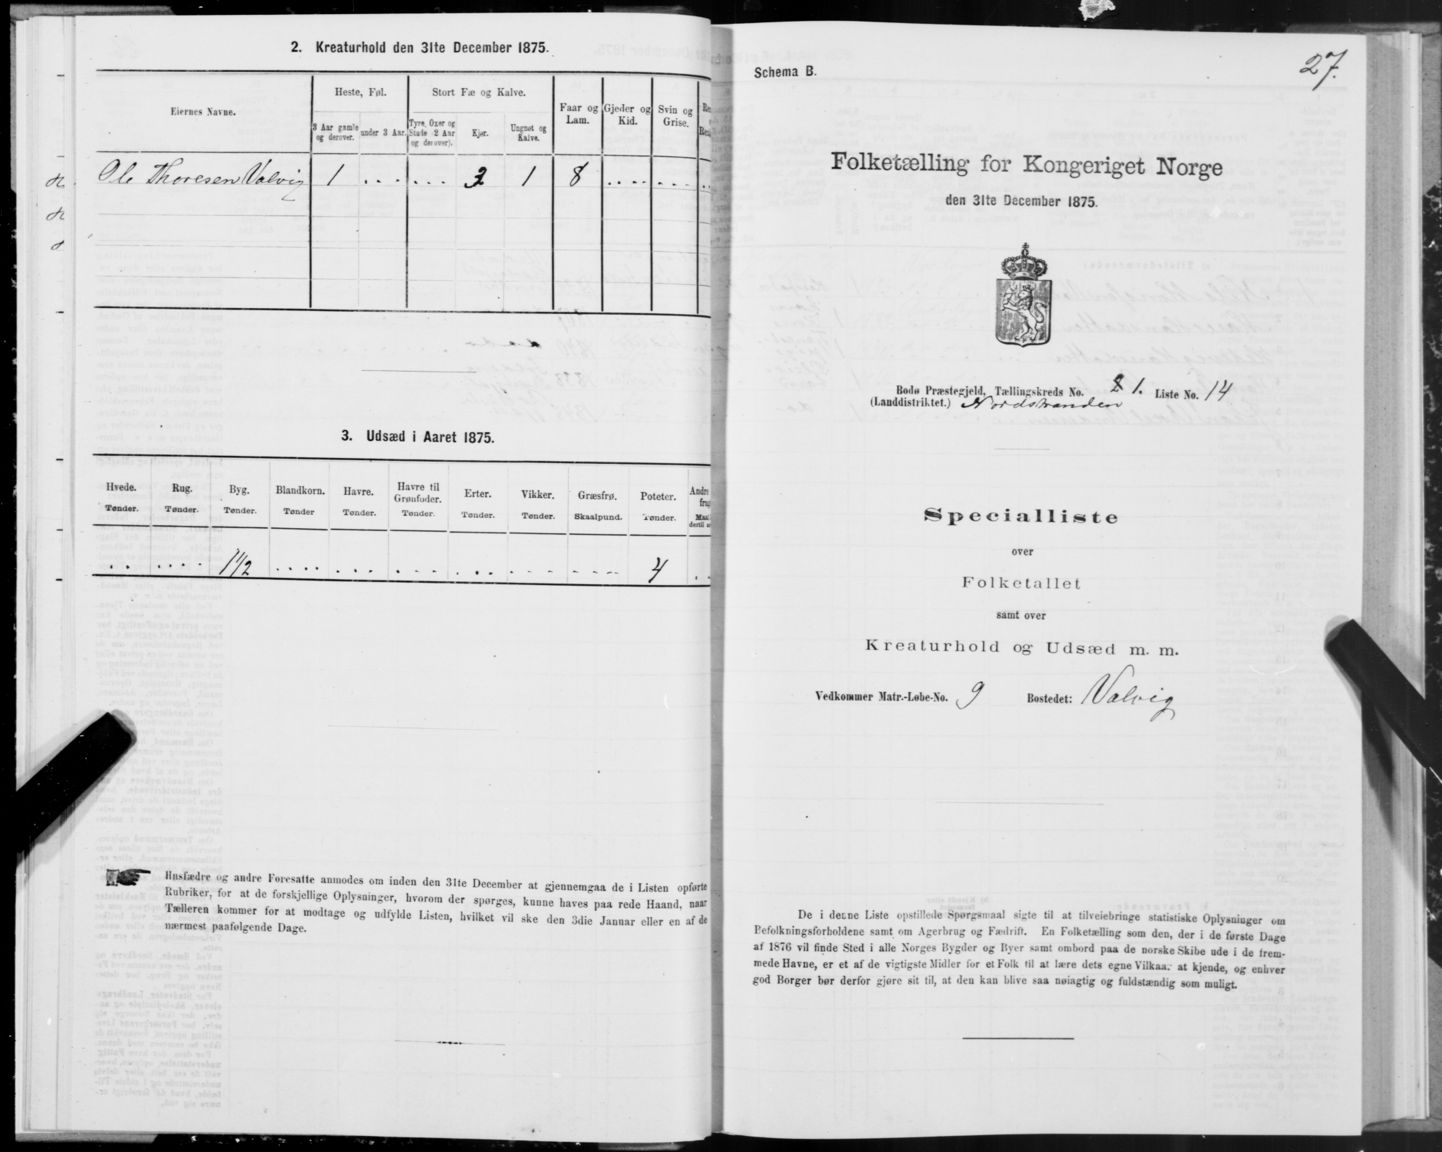 2. Kreaturhold den 31te December 1875.
Eiernes Navne.
Heste, Føl.
Stort Fæ og Kalve.
Faar og Lam.
Gjeder og Kid.
Svin og Grise.
3 Aar gamle og derover.
under 3 Aar.
Tyre, Oxer og Stude (2 Aar og derover).
Kjør.
Ungnøt og Kalve.
Ole Thoresen Valvig 1 . . . . . . 1 8 . . . . . . . . . .
3. Udsæd i Aaret 1875.
Hvede. Rug. Byg. Blandkorn. Havre. Havre til Grønfoder. Erter. Vikker. Græsfrø. Poteter.
Tønder. Tønder. Tønder. Tønder Tønder. Tønder. Tønder. Tønder. Skaalpund. Tønder.
. . . . . . 1 1/2 . . . . . . . . . . . . . . . . . . . . . . 4 . .
Husfædre og andre Foresatte anmodes om inden den 31te December at gjennemgaa de i Listen opførte
Rubriker, for at de forskjellige Oplysninger, hvorom der spørges, kunne haves paa rede Haand, naar
Tælleren kommer for at modtage og udfylde Listen, hvilket vil ske den 3die Januar eller en af de
nærmest paafølgende Dage.
27.
Schema B.
Folketælling for Kongeriget Norge
den 31te December 1875.
Bodø Præstegjeld, Tællingskreds No. 1. Liste No. 14
(Landdistriktet.) Nordstranden
Specialliste
over
Folketallet
samt over
Kreaturhold og Udsæd m. m.
Vedkommer Matr.-Løbe-No. 9 Bostedet: Valvig
De i denne Liste opstillede Spørgsmaal sigte til at tilveiebringe statistiske Oplysninger om
Befolkningsforholdene samt om Agerbrug og Fædrift. En Folketælling som den, der i de første Dage
af 1876 vil finde Sted i alle Norges Bygder og Byer samt ombord paa de norske Skibe ude i de frem-
mede Havne, er et af de vigtigste Midler for et Folk til at lære dets egne Vilkaar at kjende, og enhver
god Borger bør derfor gjøre sit til, at den kan blive saa nøiagtig og fuldstændig som muligt.